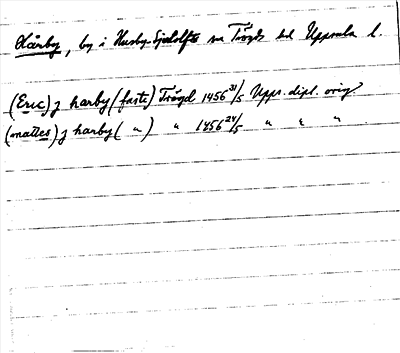 Hårby, by i Husby-Sjutolfts sn Trögds hd Uppsala l.
(Eric) j harby (faste) Trögd 1456 31/5 Upps. dipl. orig
(mattes) j harby ( " ) " 1456 24/5 " " "